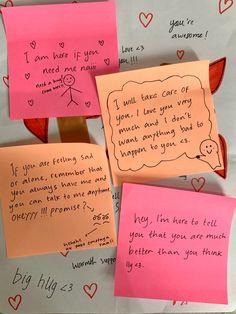 you're
awesome!
I am here if you
need me naw
need a hug
come here!
love <3
you !!!
I will take care of
you. I love you very
much and I don't
want anything bad to
happen to you <3
If you are feeling sad
or alone, remember that
you always have me and
you can talk to me anytime
okayyy !!! promise?
Warmth
hey, I'm here to tell
you that you are much
better than you think
ily <3
big hug <3